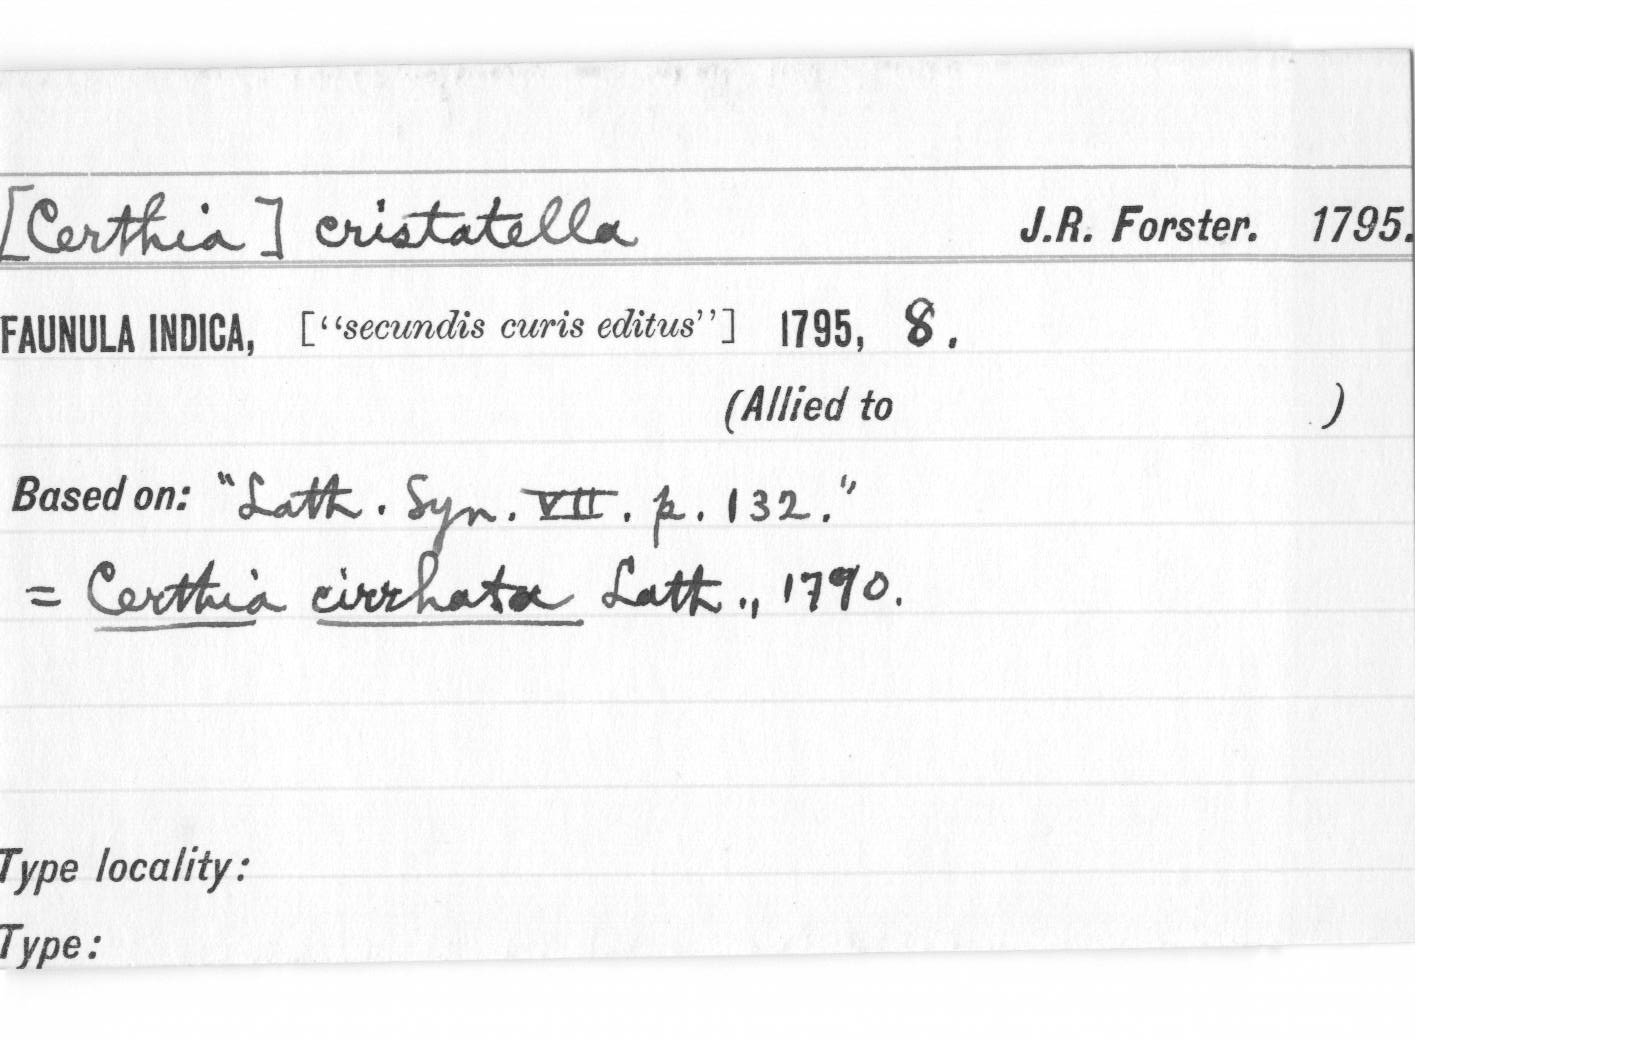 [Certhia] cristatella J.R. Forster. 1795.
FAUNULA INDICA, [“secundis curis editus”] 1795, 8.
(Allied to )
Based on: "Lath. Syn. VII. p. 132."
= Certhia cirrhata Lath., 1790.
Type locality:
Type: